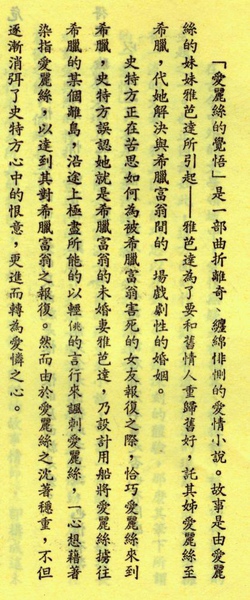 「愛麗絲的覺悟」是一部曲折離奇、纏綿悱惻的愛情小說。故事是由愛麗
絲的妹妹雅芭達所引起——雅芭達為了要和舊情人重歸舊好，託其姊愛麗絲至
希臘，代她解決與希臘富翁間的一場戲劇性的婚姻。
史特方正在苦思如何為被希臘富翁害死的女友報復之際，恰巧愛麗絲來到
希臘，史特方誤認她就是希臘富翁的未婚妻雅芭達，乃設計用船將愛麗絲擄往
希臘的某個離島，沿途上極盡所能的以輕佻的言行來諷刺愛麗絲，一心想藉著
染指愛麗絲，以達到其對希臘富翁之報復。然而由於愛麗絲之沈著穩重，不但
逐漸消弭了史特方心中的恨意，更進而轉為愛憐之心。